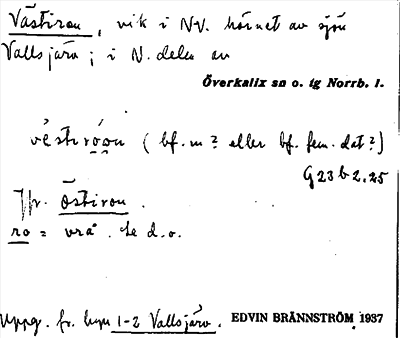 Västirou, vik i NV. hörnet av sjön
Vallsjärv; i N. delen av
Överkalix sn o. tg Norrb. l.
vèstiróou (bf. m? eller bf. fem. dat?)
G23 b 2.25
Jfr. Östirou.
ro = vrå. Se d.o.
Uppg. fr. hem 1-2 Vallsjärv.
EDVIN BRÄNNSTRÖM 1937